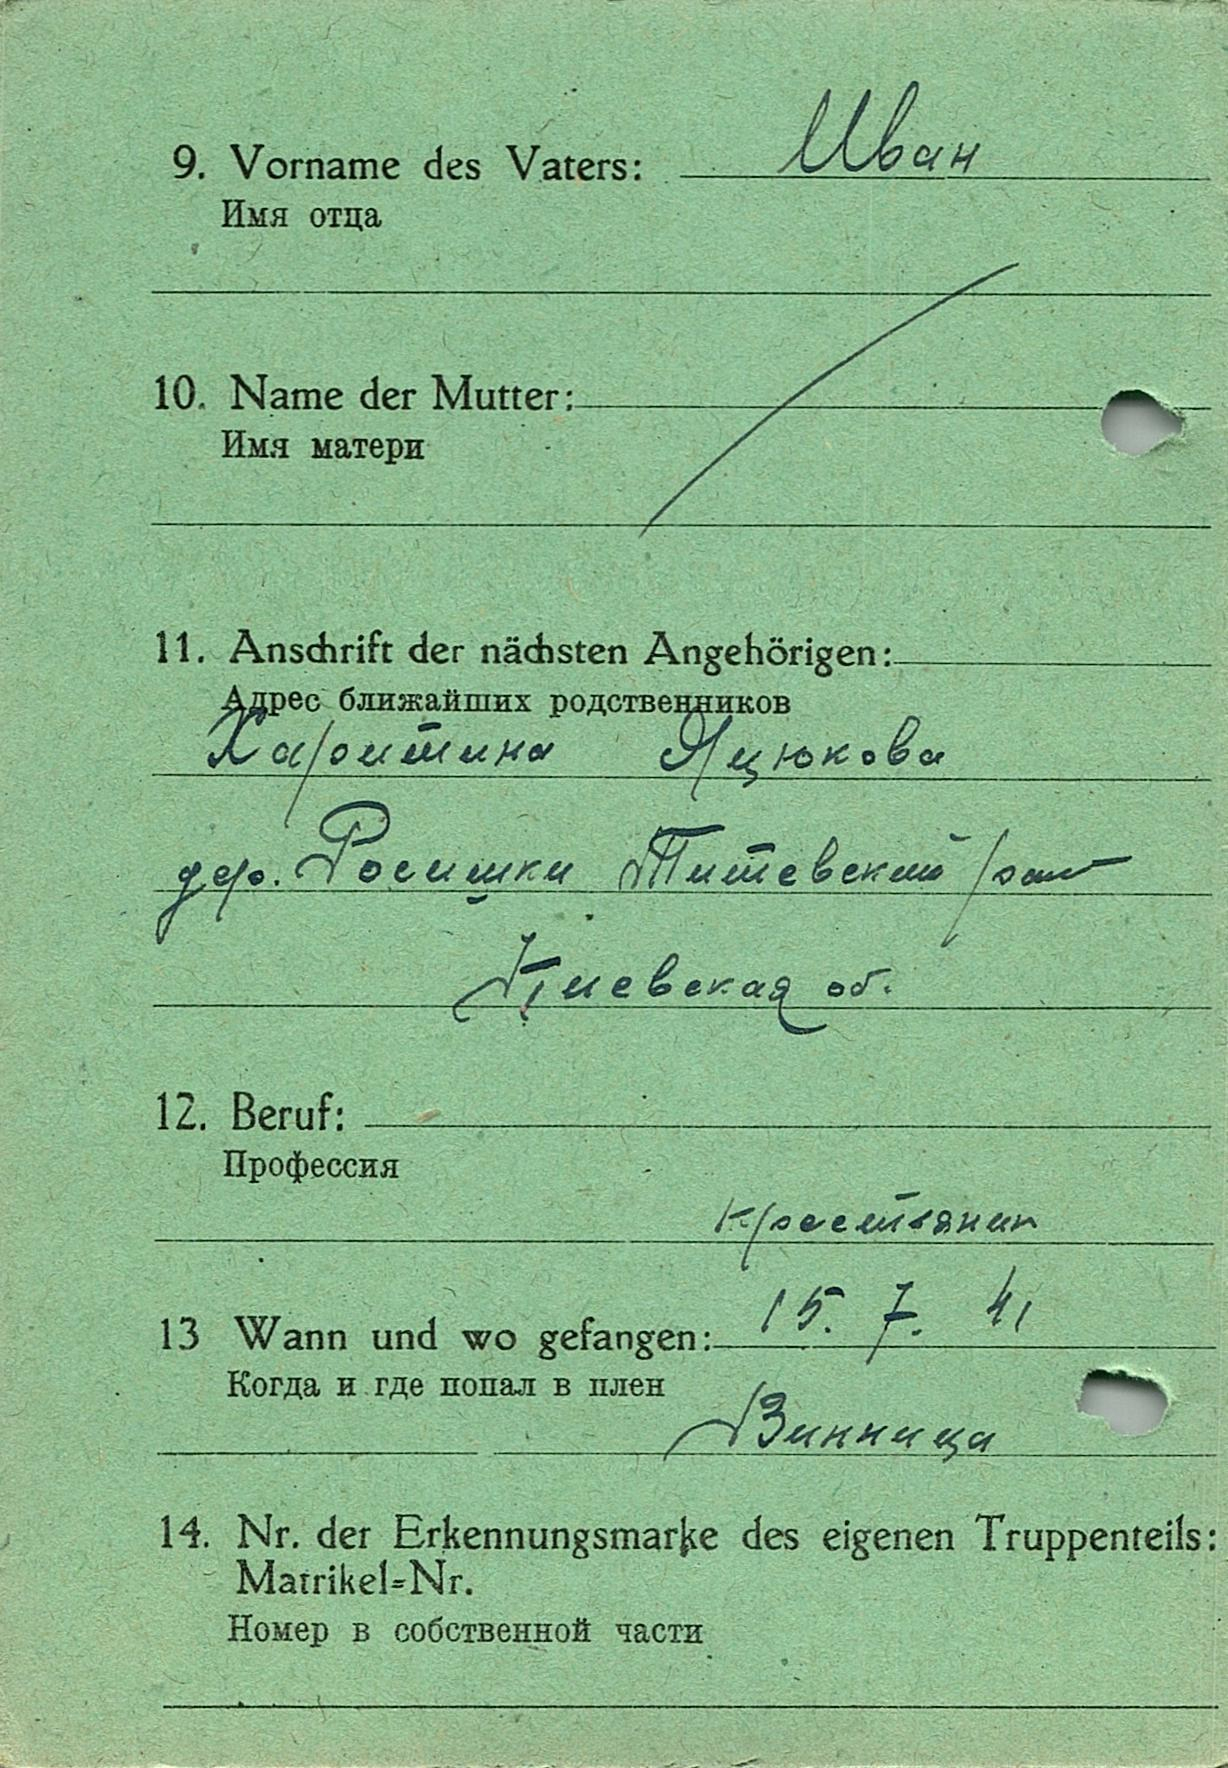 9. Vorname des Vaters: Иван
Имя отца
10. Name der Mutter:
Имя матери
11. Anschrift der nächsten Angehörigen:
Адрес ближайших родственников
Харитина Яцюкова
дер. Росишки Титевский
Киевская об.
12. Beruf:
Профессия
крестьянин
13 Wann und wo gefangen: 15. 7. 41
Когда и где попал в плен
Винница
14. Nr. der Erkennungsmarke des eigenen Truppenteils:
Matrikel=Nr.
Номер в собственной части